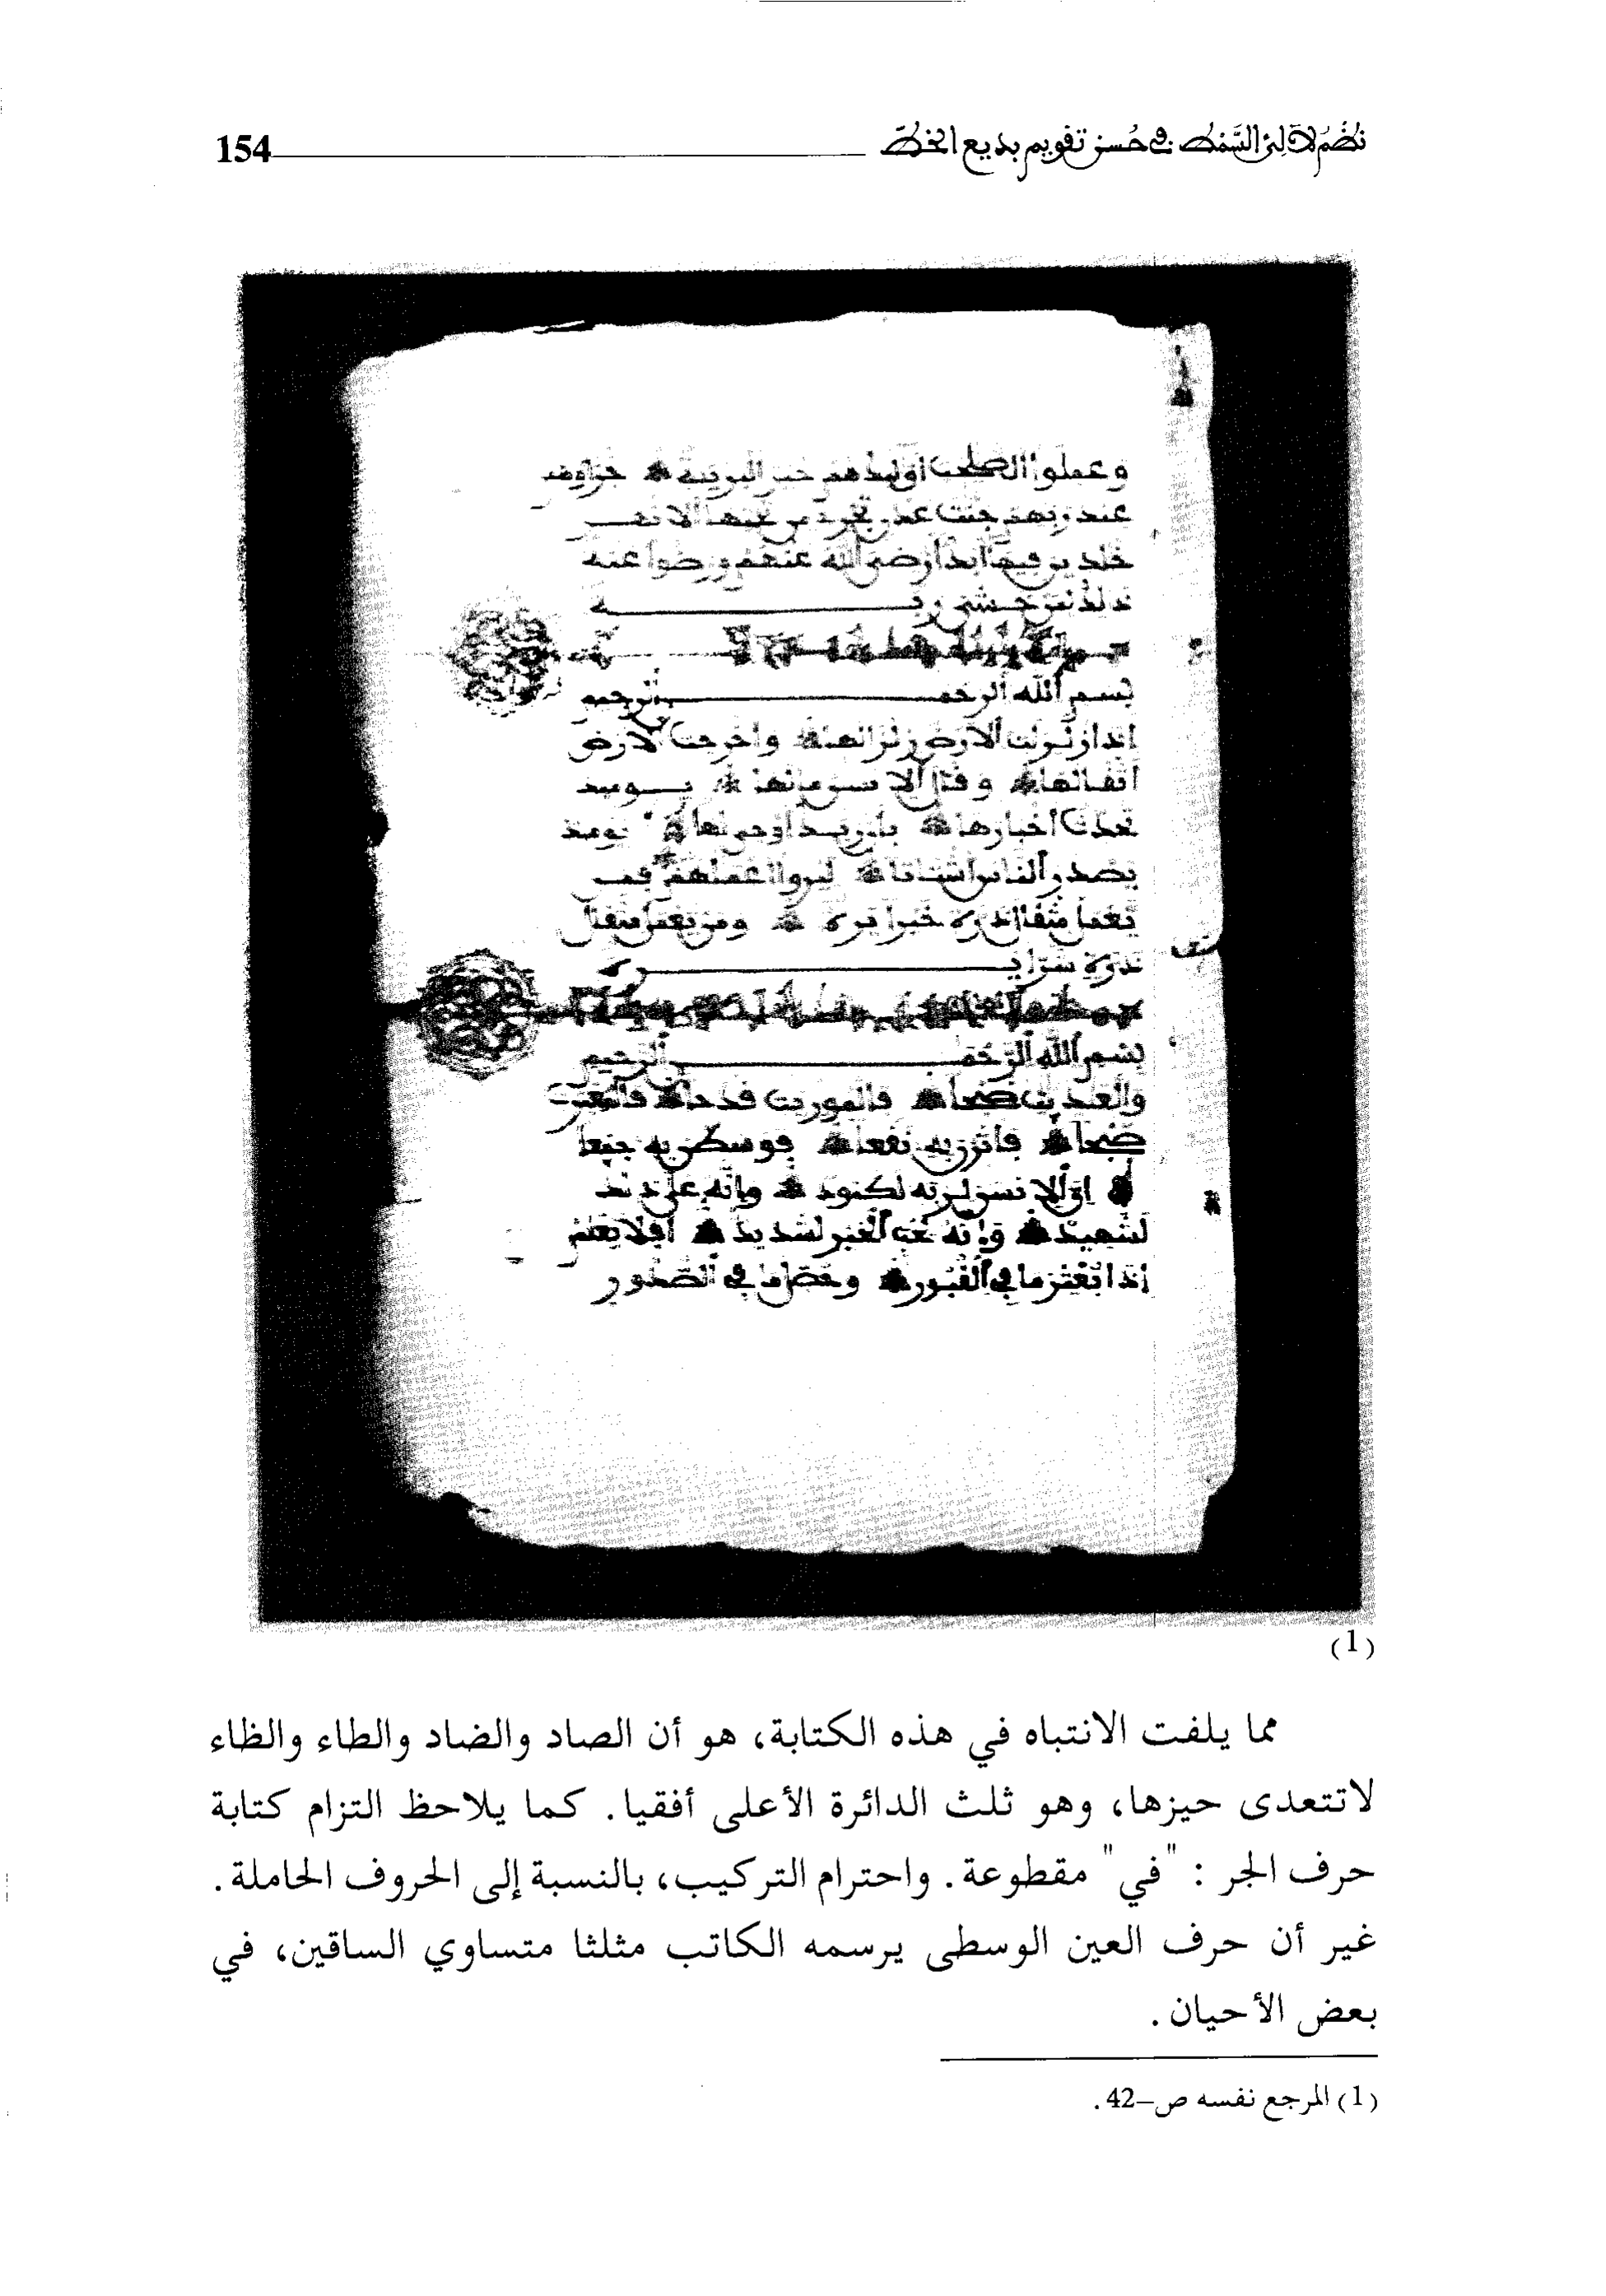 نظم لآلئ السمط في حسن تقويم بديع الخط 154
وعملوا الصلحت اوليك هم خير البرية جزاوهم
عند ربهم جنت عدن تجري من تحتها الانهر
خلدين فيها ابدا رضي الله عنهم ورضوا عنه
ذلك لمن خشي ربه
بسم الله الرحمن الرحيم
اذا زلزلت الارض زلزالها واخرجت الارض
اثقالها وقال الانسن مالها يوميذ
تحدث اخبارها بان ربك اوحى لها يوميذ
يصدر الناس اشتاتا ليروا اعملهم فمن
يعمل مثقال ذرة خيرا يره ومن يعمل مثقال
ذرة شرا يره
بسم الله الرحمن الرحيم
والعديت ضبحا فالموريت قدحا فالمغيرت
صبحا فاثرن به نقعا فوسطن به جمعا
ان الانسن لربه لكنود وانه على ذلك
لشهيد وانه لحب الخير لشديد افلا يعلم
اذا بعثر ما في القبور وحصل ما في الصدور
(1)
مما يلفت الانتباه في هذه الكتابة، هو أن الصاد والضاد والطاء والظاء
لاتتعدى حيزها، وهو ثلث الدائرة الأعلى أفقيا. كما يلاحظ التزام كتابة
حرف الجر : "في" مقطوعة. واحترام التركيب، بالنسبة إلى الحروف الحاملة.
غير أن حرف العين الوسطى يرسمه الكاتب مثلثا متساوي الساقين، في
بعض الأحيان.
(1) المرجع نفسه ص-42.